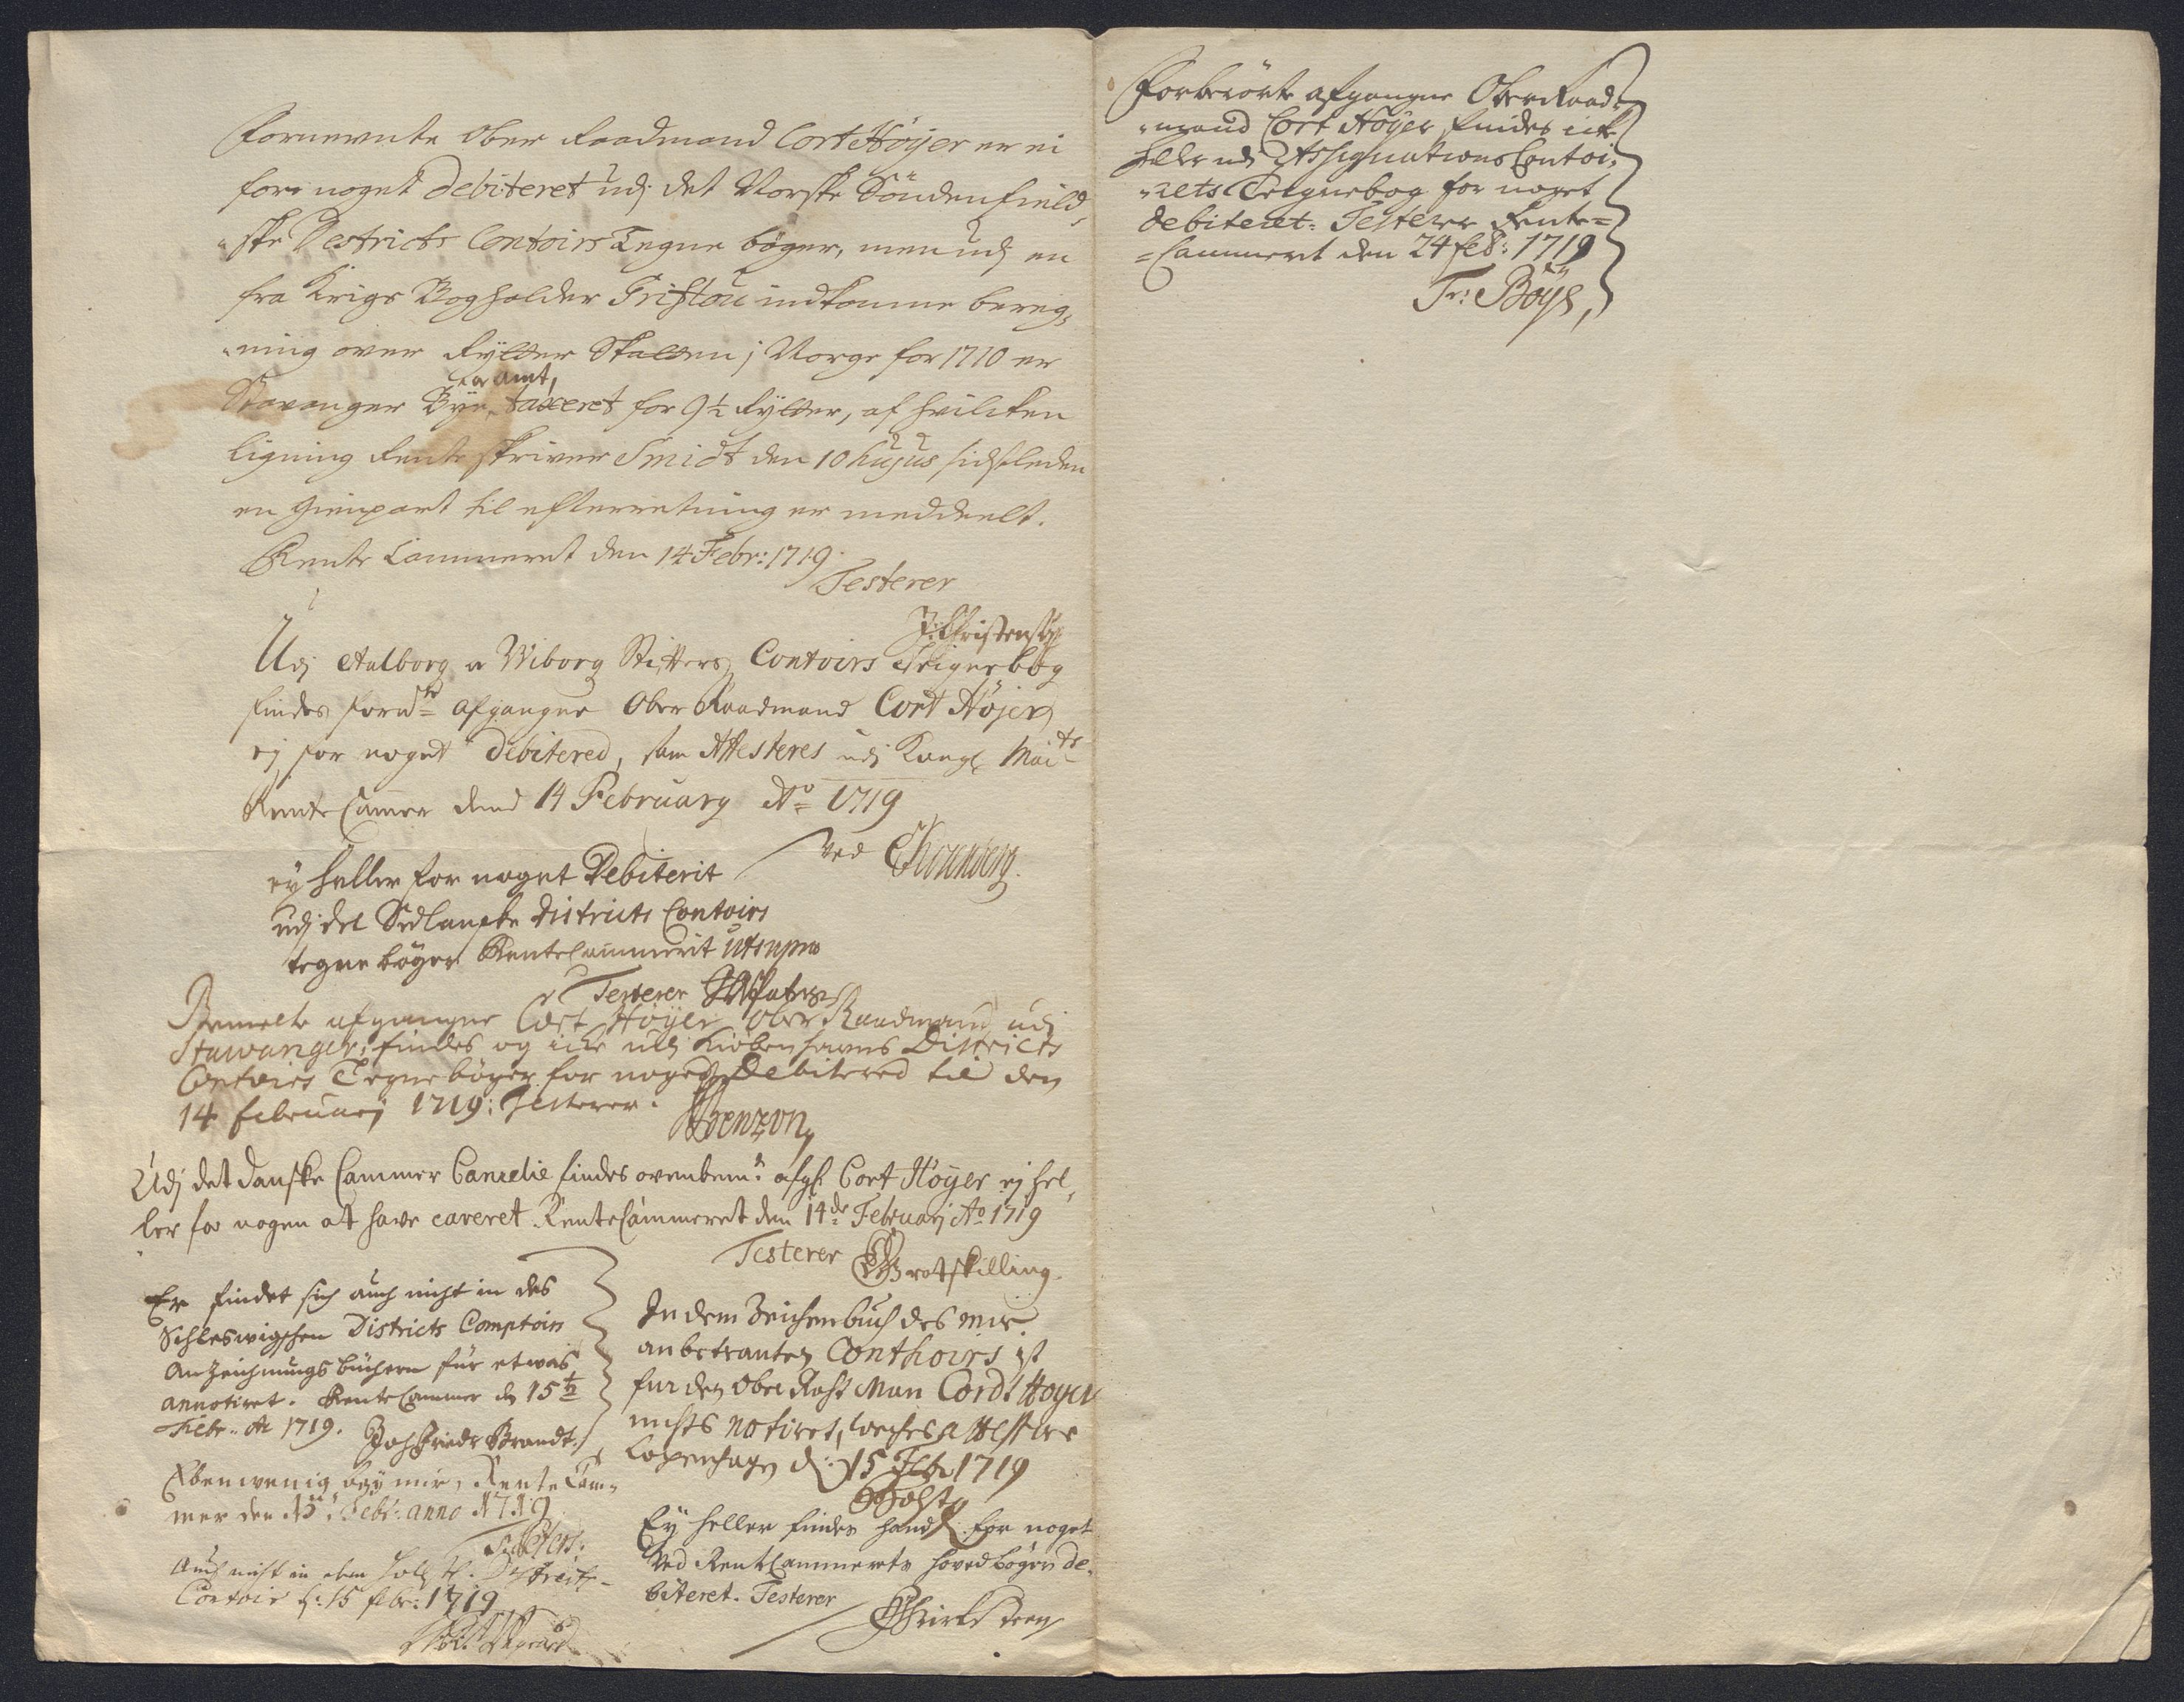 Fornevnte Ober Raadmand Cort Höyer er ei
for noget debiteret udj det Norske Söndenfield,
ske Destricts Contoirs Tegne böger, men udj en
fra Krigs Bogholder Tristou indkomne bereg,
ning over Rytter Skatten j Norge for 1710 er
Stavanger Bye
og amt,
taxeret for 9½ Rytter, af hvilcken
Ligning Rente skriver Smidt den 10 hujus sidstleden
en gienpart til efterretning er meddeelt.
Rente Cammeret den 14 Febr: 1719.
Testerer
J: Christensen
Udj Aalborg og Wiborg Stifters Contoirs Teignebog
findes fornte afgangne Ober Raadmand Cort Höjer
ej for noget debitered, som Attesteres udj Kongl Maits
Rente Camer dend 14 February Ao 1719
ved
ey heller for noget Debiterit
udj det Siellanske Districts Contoirs
tegne böger Rentecammerit ut supra
Testerer
Bemelte afgangne Cort Höyer Ober Raadmand udj
Stawanger, findes og icke udj Kiöbenhavns Districts
Contoirs Tegneböger for noget debitered til den
14 februarj 1719: Testerer.
Benzon
Udj det danske Cammer Cancelie findes ovenbemte afgl Cort Höyer ej hel,
ler for nogen at have caveret. RenteCammeret den 14de Februarj Ao 1719
Testerer Grotskilling.
Er findet sich auch nicht in des
Schleswigschen Districts Comptoirs
Anzeichnungsbüchern für etwas
annotiret. RenteCammer d 15t
Febr. Ao 1719. Joh Friedr Brandt.
Ebenwenig bey mir, Rente Cam,
mer den 15 Febr: anno 1719
Auch nicht in dem Holst. Districts
Contoir d: 15 febr: 1719
In dem Zeichenbuch des mir
anbetrauten Conthoirs ist
für den Ober Raht Man Cordt Hoyer
nichts notiret, welches attestire
Copenhagen d: 15 Febr 1719
Holst
Ey heller findes hand for noget
ved RentCammerets hoved böger de,
biteret. Testerer
Forberörte afgangne Ober Raad,
mand Cort Höyer findes icke
heller udj Assignations Contoi,
rets Teignebog for noget
debiteret. Testerer Rente=
=Cammeret den 24 feb: 1719
Fr: Böys,